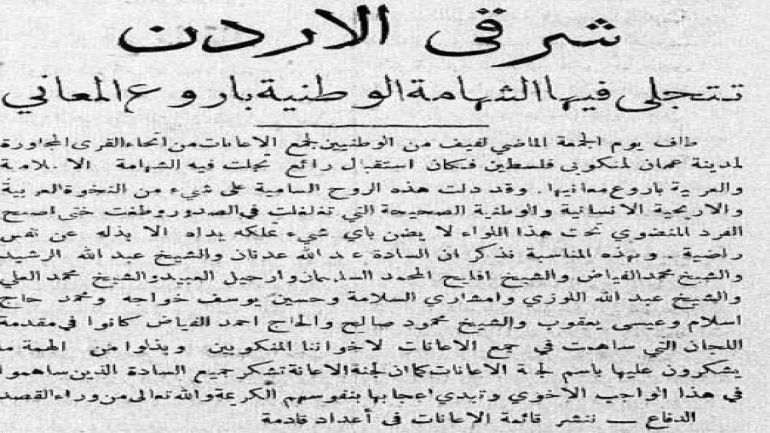 شرقي الاردن
تتجلى فيها الشهامة الوطنية باروع المعاني
طاف يوم الجمعة الماضي لفيف من الوطنيين لجمع الاعانات من انحاء القرى المجاورة
لمدينة عمان لمنكوبى فلسطين فكان استقبال رائع تجلت فيه الشهامة الاسلامية
والعربية باروع معانيها. وقد دلت هذه الروح السامية على شيء من النخوة العربية
والاريحية الانسانية والوطنية الصحيحة التي تغلغلت في الصدور وطغت حتى اصبح
الفرد المنضوي تحت هذا اللواء لا يضن باي شيء تملكه يداه الا بذله عن نفس
راضية. وبهذه المناسبة نذكر ان السادة عبد الله عدنان والشيخ عبد الله الرشيد
والشيخ محمد الفياض والشيخ افليح المحمد السليمان وارحيل العبيد والشيخ محمد العلي
والشيخ عبد الله اللوزي وامشاري السلامة وحسين يوسف خواجه ومحمد حاج
اسلام وعيسى يعقوب والشيخ محمود صالح والحاج احمد الفياض كانوا في مقدمة
اللجان التي ساهمت في جمع الاعانات لاخواننا المنكوبين وبذلوا من الهمة ما
يشكرون عليها باسم لجنة الاعانات كما ان لجنة الاعانة تشكر جميع السادة الذين ساهموا
في هذا الواجب الاخوي وتبدي اعجابها بنفوسهم الكريمة والله تعالى من وراء القصد
الدفاع — ننشر قائمة الاعانات في أعداد قادمة